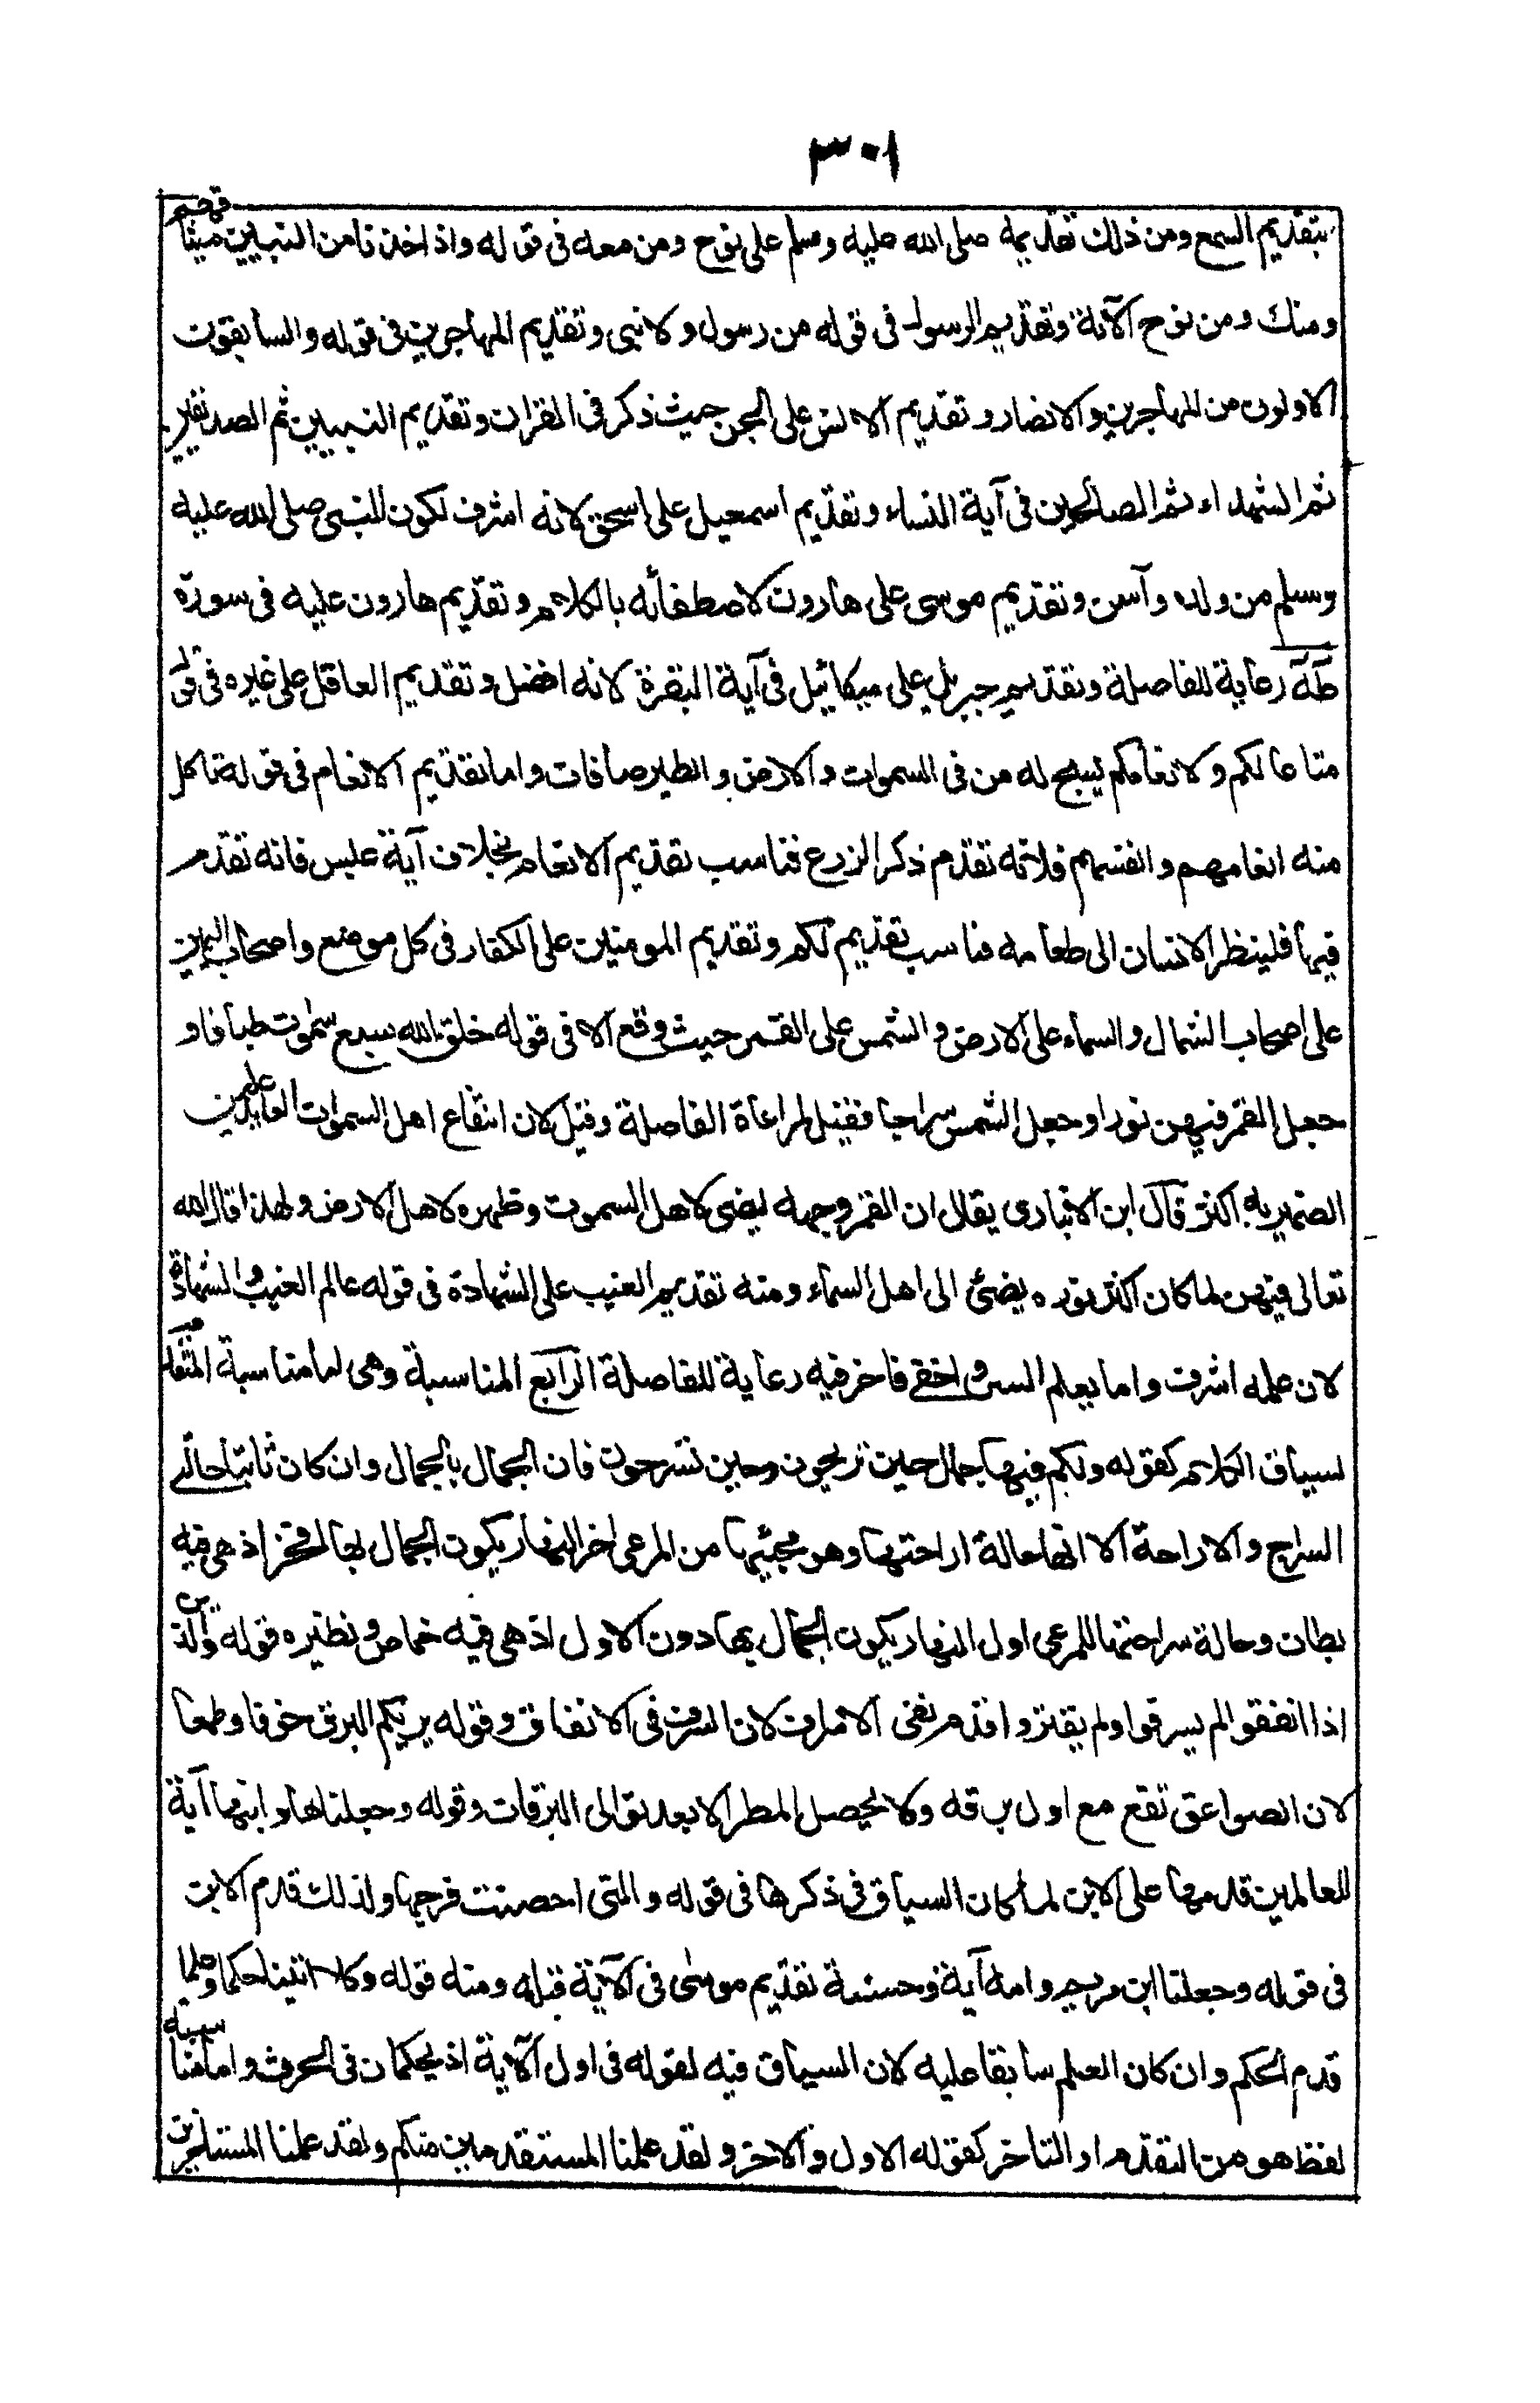 ٣٠١
بتقديم السمع ومن ذلك تقديمه صلى الله عليه وسلم على نوح ومن معه فى قوله واذ اخذنا من النبيين ميثاقهم
ومنك ومن نوح الآية وتقديم الرسول فى قوله من رسول ولا نبى وتقديم المهاجرين فى قوله والسابقون
الاولون من المهاجرين والانصار وتقديم الانس على الجن حيث ذكر فى القران وتقديم النبيين ثم الصديقين
ثم الشهداء ثم الصالحين فى آية النساء وتقديم اسمعيل على اسحق لانه اشرف لكون النبى صلى الله عليه
وسلم من ولده وآسن وتقديم موسى على هارون لاصطفائه بالكلام وتقديم هارون عليه فى سورة
طه رعاية للفاصلة وتقديم جبريل على ميكائيل فى آية البقرة لانه افضل وتقديم العاقل على غيره فى قوله
متاعا لكم ولانعامكم يسبح له من فى السموات والارض والطير صافات واما تقديم الانعام فى قوله تاكل
منه انعامهم وانفسهم فلانه تقدم ذكر الزرع فناسب تقديم الانعام بخلاف آية عبس فانه تقدم
فيها فلينظر الانسان الى طعامه فناسب تقديم لكم وتقديم المومنين على الكفار فى كل موضع واصحاب اليمين
على اصحاب الشمال والسماء على الارض والشمس على القمر حيث وقع الا فى قوله خلق الله سبع سموت طباقا و
جعل القمر فيهن نورا وجعل الشمس سراجا فقيل لمراعاة الفاصلة وقيل لان انتفاع اهل السموات العايد عليهن
الضمير به اكثر قال ابن الانبارى يقال ان القمر وجهه يضى لاهل السموت وظهره لاهل الارض ولهذا قال الله
تعالى فيهن لما كان اكثر نوره يضئ الى اهل السماء ومنه تقديم الغيب على الشهادة فى قوله عالم الغيب والشهادة
لان علمه اشرف واما يعلم السر واخفى فاخر فيه رعاية للفاصلة الرابع المناسبة وهى اما مناسبة المتقدم
لسياق الكلام كقوله ولكم فيها جمال حين تريحون وحين تسرحون فان الجمال بالجمال وان كان ثابتا حالتى
السراح والاراحة الا انها حالة اراحتها وهو مجيئها من المرعى اخر النهار يكون الجمال بها افخر اذ هى فيه
بطان وحالة سراحتها للمرعى اول النهار يكون الجمال بها دون الاول اذ هى فيه خماص ونظيره قوله والذين
اذا انفقوا لم يسرفوا ولم يقتروا قدم نفى الاسراف لان السرف فى الانفاق وقوله يريكم البرق خوفا وطمعا
لان الصواعق تقع مع اول برقه ولا يحصل المطر الا بعد توالى البرقات وقوله وجعلناها وابنها آية
للعالمين قدمها على الابن لما كان السياق فى ذكرها فى قوله والتى احصنت فرجها ولذلك قدم الابن
فى قوله وجعلنا ابن مريم وامه آية وحسنه تقديم موسى فى الآية قبله ومنه قوله وكلا اتينا حكما وعلما
قدم الحكم وان كان العلم سابقا عليه لان السياق فيه لقوله فى اول الآية اذ يحكمان فى الحرث واما مناسبة
لفظ هو من التقدم او التاخر كقوله الاول والاخر ولقد علمنا المستقدمين منكم ولقد علمنا المستاخرين